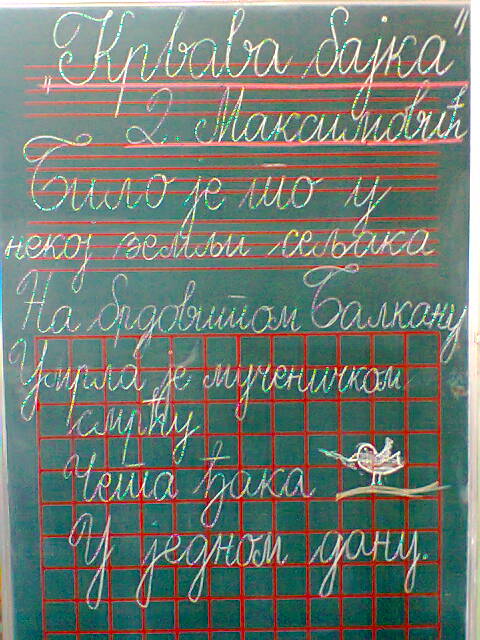 „Крвава бајка"
Д. Максимовић
Било је то у
некој земљи сељака
На брдовитом Балкану
Умрла је мученичком
смрћу
Чета ђака
У једном дану.